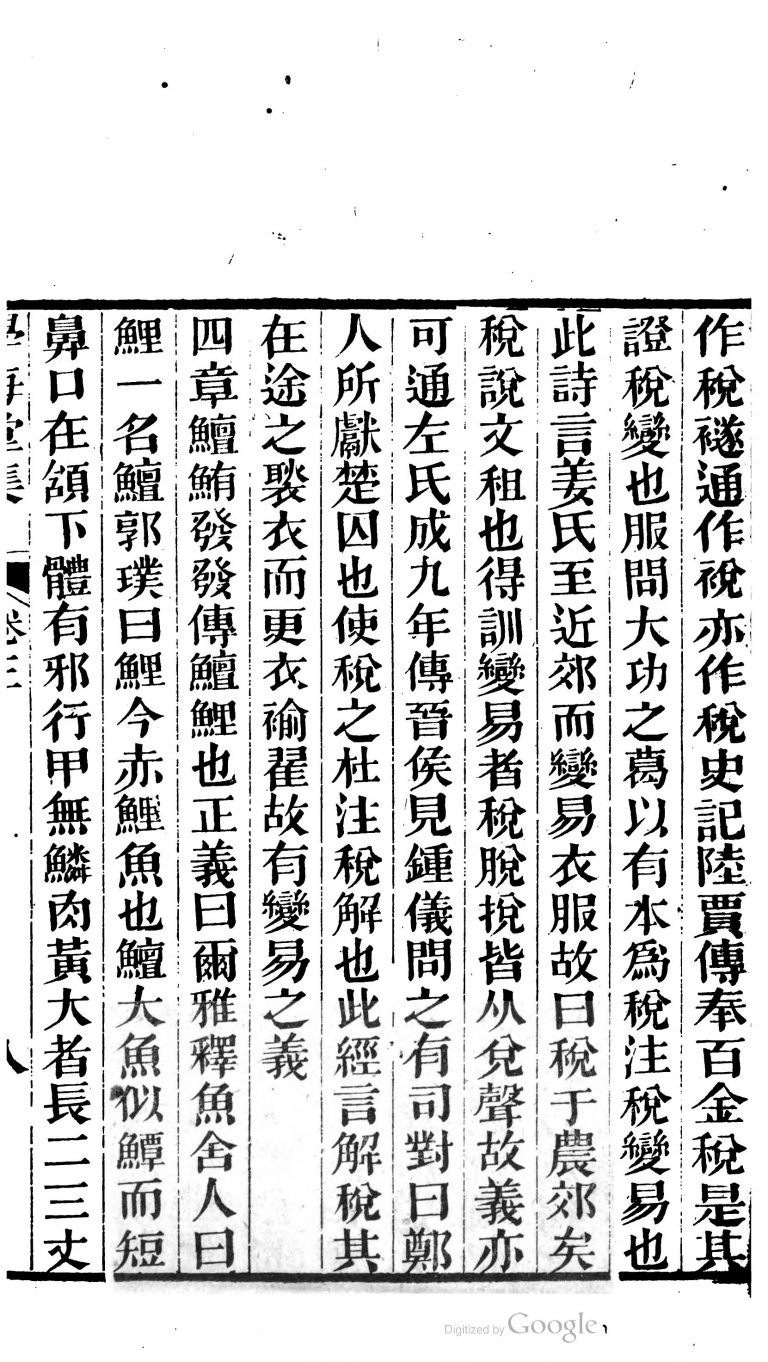 作稅襚通作裞亦作稅史記陸賈傳奉百金稅是其
證稅變也服問大功之葛以有本爲稅注稅變易也
此詩言姜氏至近郊而變易衣服故曰稅于農郊矣
稅說文租也得訓變易者稅脫挩皆从兌聲故義亦
可通左氏成九年傳晉侯見鍾儀問之有司對曰鄭
人所獻楚囚也使稅之杜注稅解也此經言解稅其
在途之褧衣而更衣褕翟故有變易之義
四章鱣鮪發發傳鱣鯉也正義曰爾雅釋魚舍人曰
鯉一名鱣郭璞曰鯉今赤鯉魚也鱣大魚似鱏而短
鼻口在頷下體有邪行甲無鱗肉黃大者長二三丈
學海堂集 卷三 八
Digitized by Google